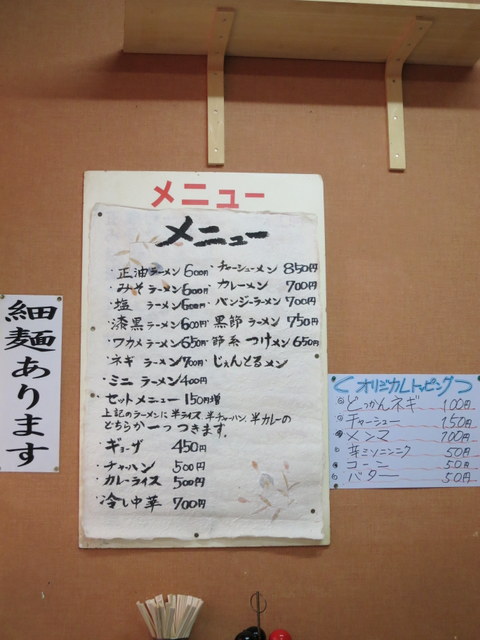 メニュー
メニュー
・正油ラーメン600円
・みそラーメン600円
・塩 ラーメン600円
・漆黒ラーメン600円
・ワカメラーメン650円
・ネギ ラーメン700円
・ミニ ラーメン400円
・チャーシューメン 850円
・カレーメン 700円
・バンジーラーメン 700円
・黒節ラーメン 750円
・節系つけメン650円
・じぇんとるメン
・セットメニュー 150円増
上記のラーメンに半ライス、半チャーハン、半カレーの
どちらか一つつきます。
・ギョーザ 450円
・チャーハン 500円
・カレーライス 500円
・冷し中華 700円
細麺あります
オリジナルトッピング
どっかんネギ 100円
チャーシュー 150円
メンマ 100円
辛ミソニンニク 50円
コーン 50円
バター 50円